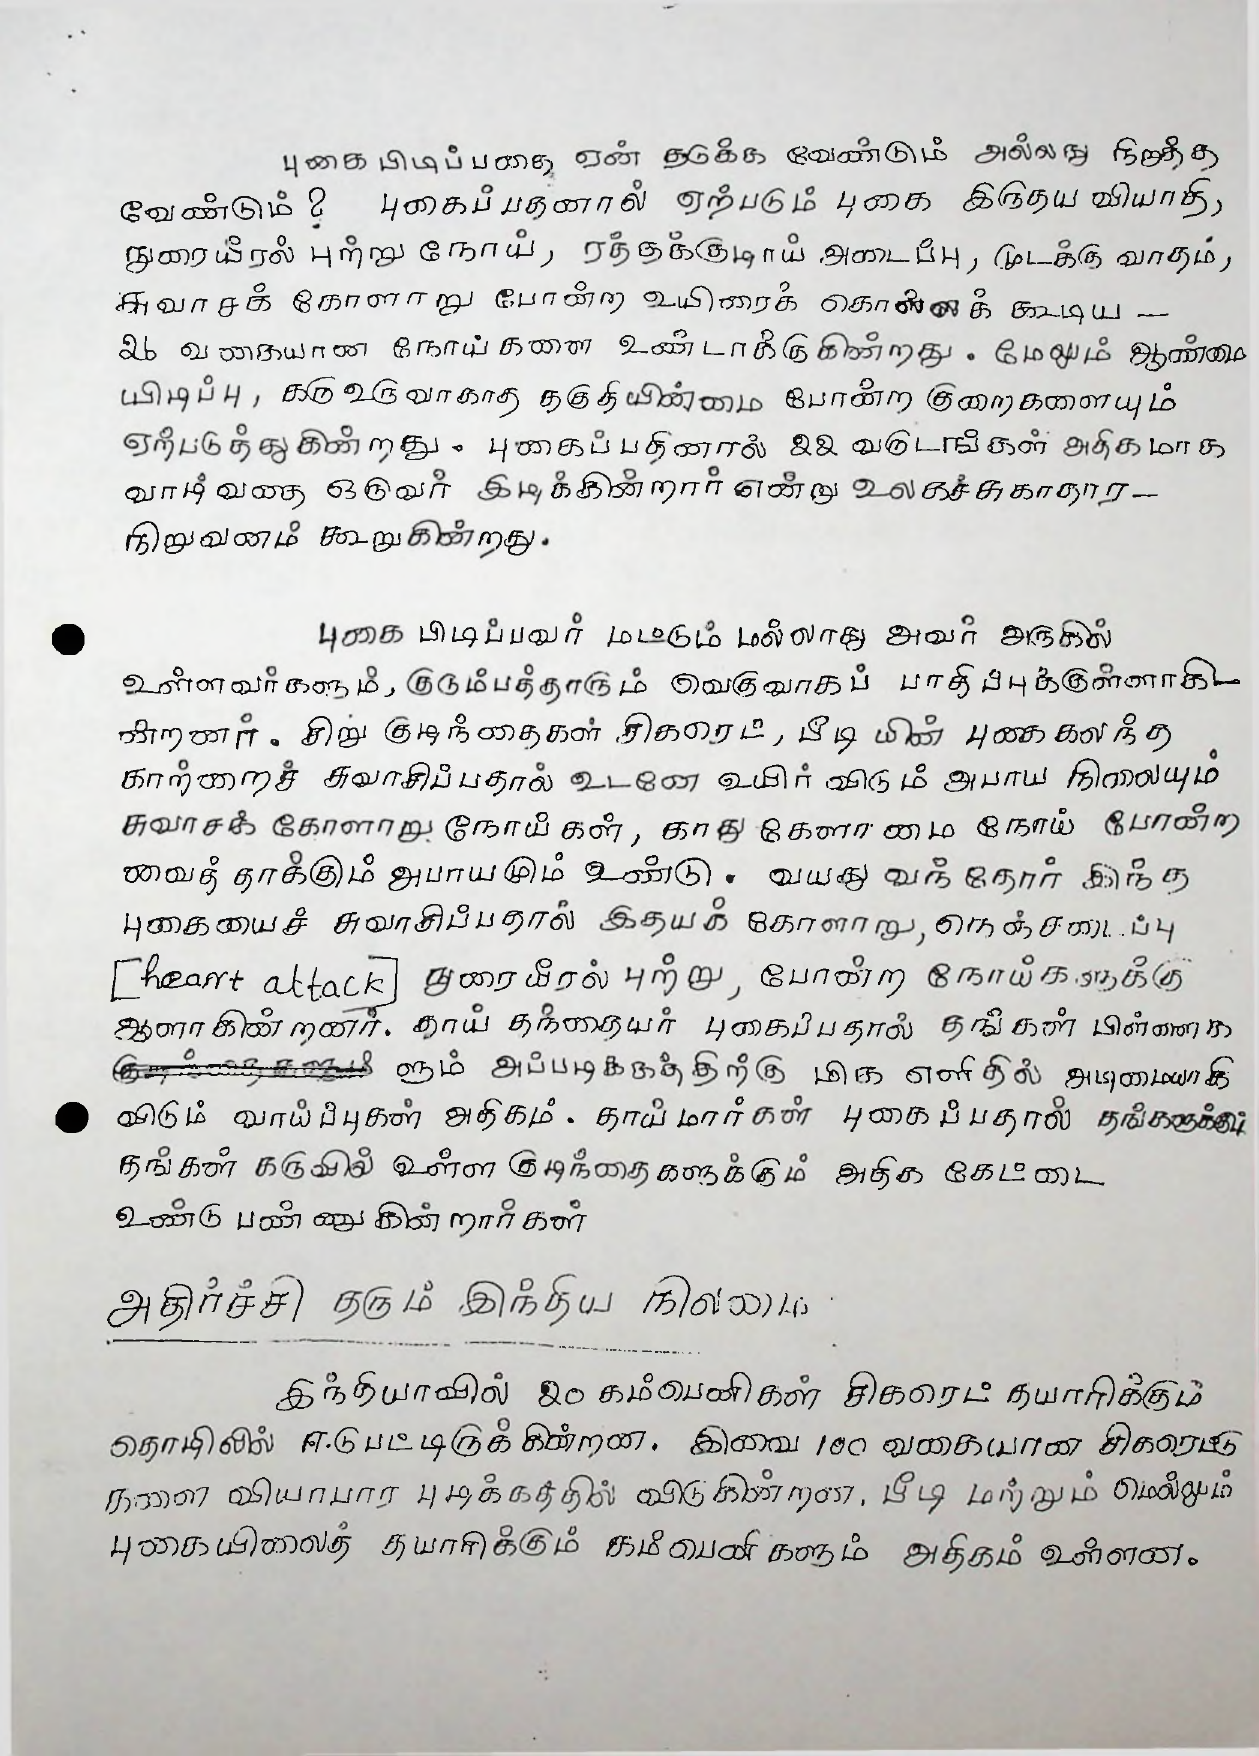 புகை பிடிப்பதை ஏன் தடுக்க வேண்டும் அல்லது நிறுத்த
வேண்டும்? புகைப்பதனால் ஏற்படும் புகை இருதய வியாதி,
நுரையீரல் புற்று நோய், ரத்தக்குழாய் அடைப்பு, முடக்கு வாதம்,
சுவாசக் கோளாறு போன்ற உயிரைக் கொல்லக் கூடிய –
வகையான நோய்களை உண்டாக்குகின்றது. மேலும் ஆண்மை
யிழப்பு, கரு உருவாகாத தகுதியின்மை போன்ற குறைகளையும்
ஏற்படுத்துகின்றது. புகைப்பதினால் 22 வருடங்கள் அதிகமாக
வாழ்வதை ஒருவர் இழக்கின்றார் என்று உலகச்சுகாதார –
நிறுவனம் கூறுகின்றது.
புகை பிடிப்பவர் மட்டும் மல்லாது அவர் அருகில்
உள்ளவர்களும், குடும்பத்தாரும் வெகுவாகப் பாதிப்புக்குள்ளாகி–
ன்றனர். சிறு குழந்தைகள் சிகரெட், பீடி யின் புகை கலந்த
காற்றைச் சுவாசிப்பதால் உடனே உயிர் விடும் அபாய நிலையும்
சுவாசக் கோளாறு நோய்கள், காது கேளாமை நோய் போன்ற
வைத் தாக்கும் அபாயமும் உண்டு. வயது வந்தோர் இந்த
புகையைச் சுவாசிப்பதால் இதயக் கோளாறு, நெஞ்சடைப்பு
[heart attack] நுரையீரல் புற்று, போன்ற நோய்களுக்கு
ஆளாகின்றனர். தாய் தந்தையர் புகைப்பதால் தங்கள் பிள்ளைக
ளும் அப்பழக்கத்திற்கு மிக எளிதில் அடிமையாகி
விடும் வாய்ப்புகள் அதிகம். தாய்மார்கள் புகைப்பதால் தங்களுக்கும்
தங்கள் கருவில் உள்ள குழந்தைகளுக்கும் அதிக கேட்டை
உண்டு பண்ணுகின்றார்கள்
அதிர்ச்சி தரும் இந்திய நிலை
இந்தியாவில் 20 கம்பெனிகள் சிகரெட் தயாரிக்கும்
தொழிலில் ஈடுபட்டிருக்கின்றன. இவை 100 வகையான சிகரெட்டு
களை வியாபார புழக்கத்தில் விடுகின்றன. பீடி மற்றும் மெல்லும்
புகையிலைத் தயாரிக்கும் கம்பெனிகளும் அதிகம் உள்ளன.